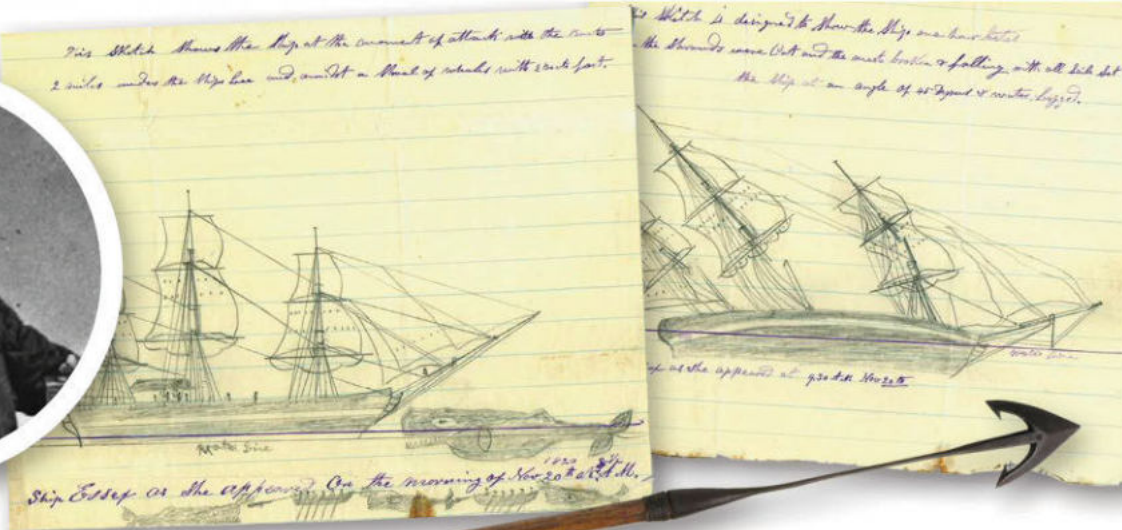 This Sketch Shows the Ship at the moment of attack with the boats
2 miles under the Ships Lee and, amidst a Shoal of whales with 2 boats fast.
Water Line
Ship Essex as She appeared On the morning of Nov 20th 1820 at A.M.
Sketch is designed to Show the Ship one hour
the Shrouds were Cut and the masts broken & falling with all Sail Set
the Ship at an angle of 45 Degrees & water logged.
Water Line
as She appeared at 9.30 A.M. Nov 20th